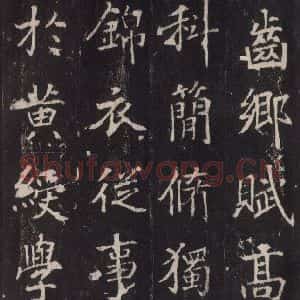 齒鄉賦高
科簡脩獨
錦衣從事
於黃綬學
Shufawang.CN